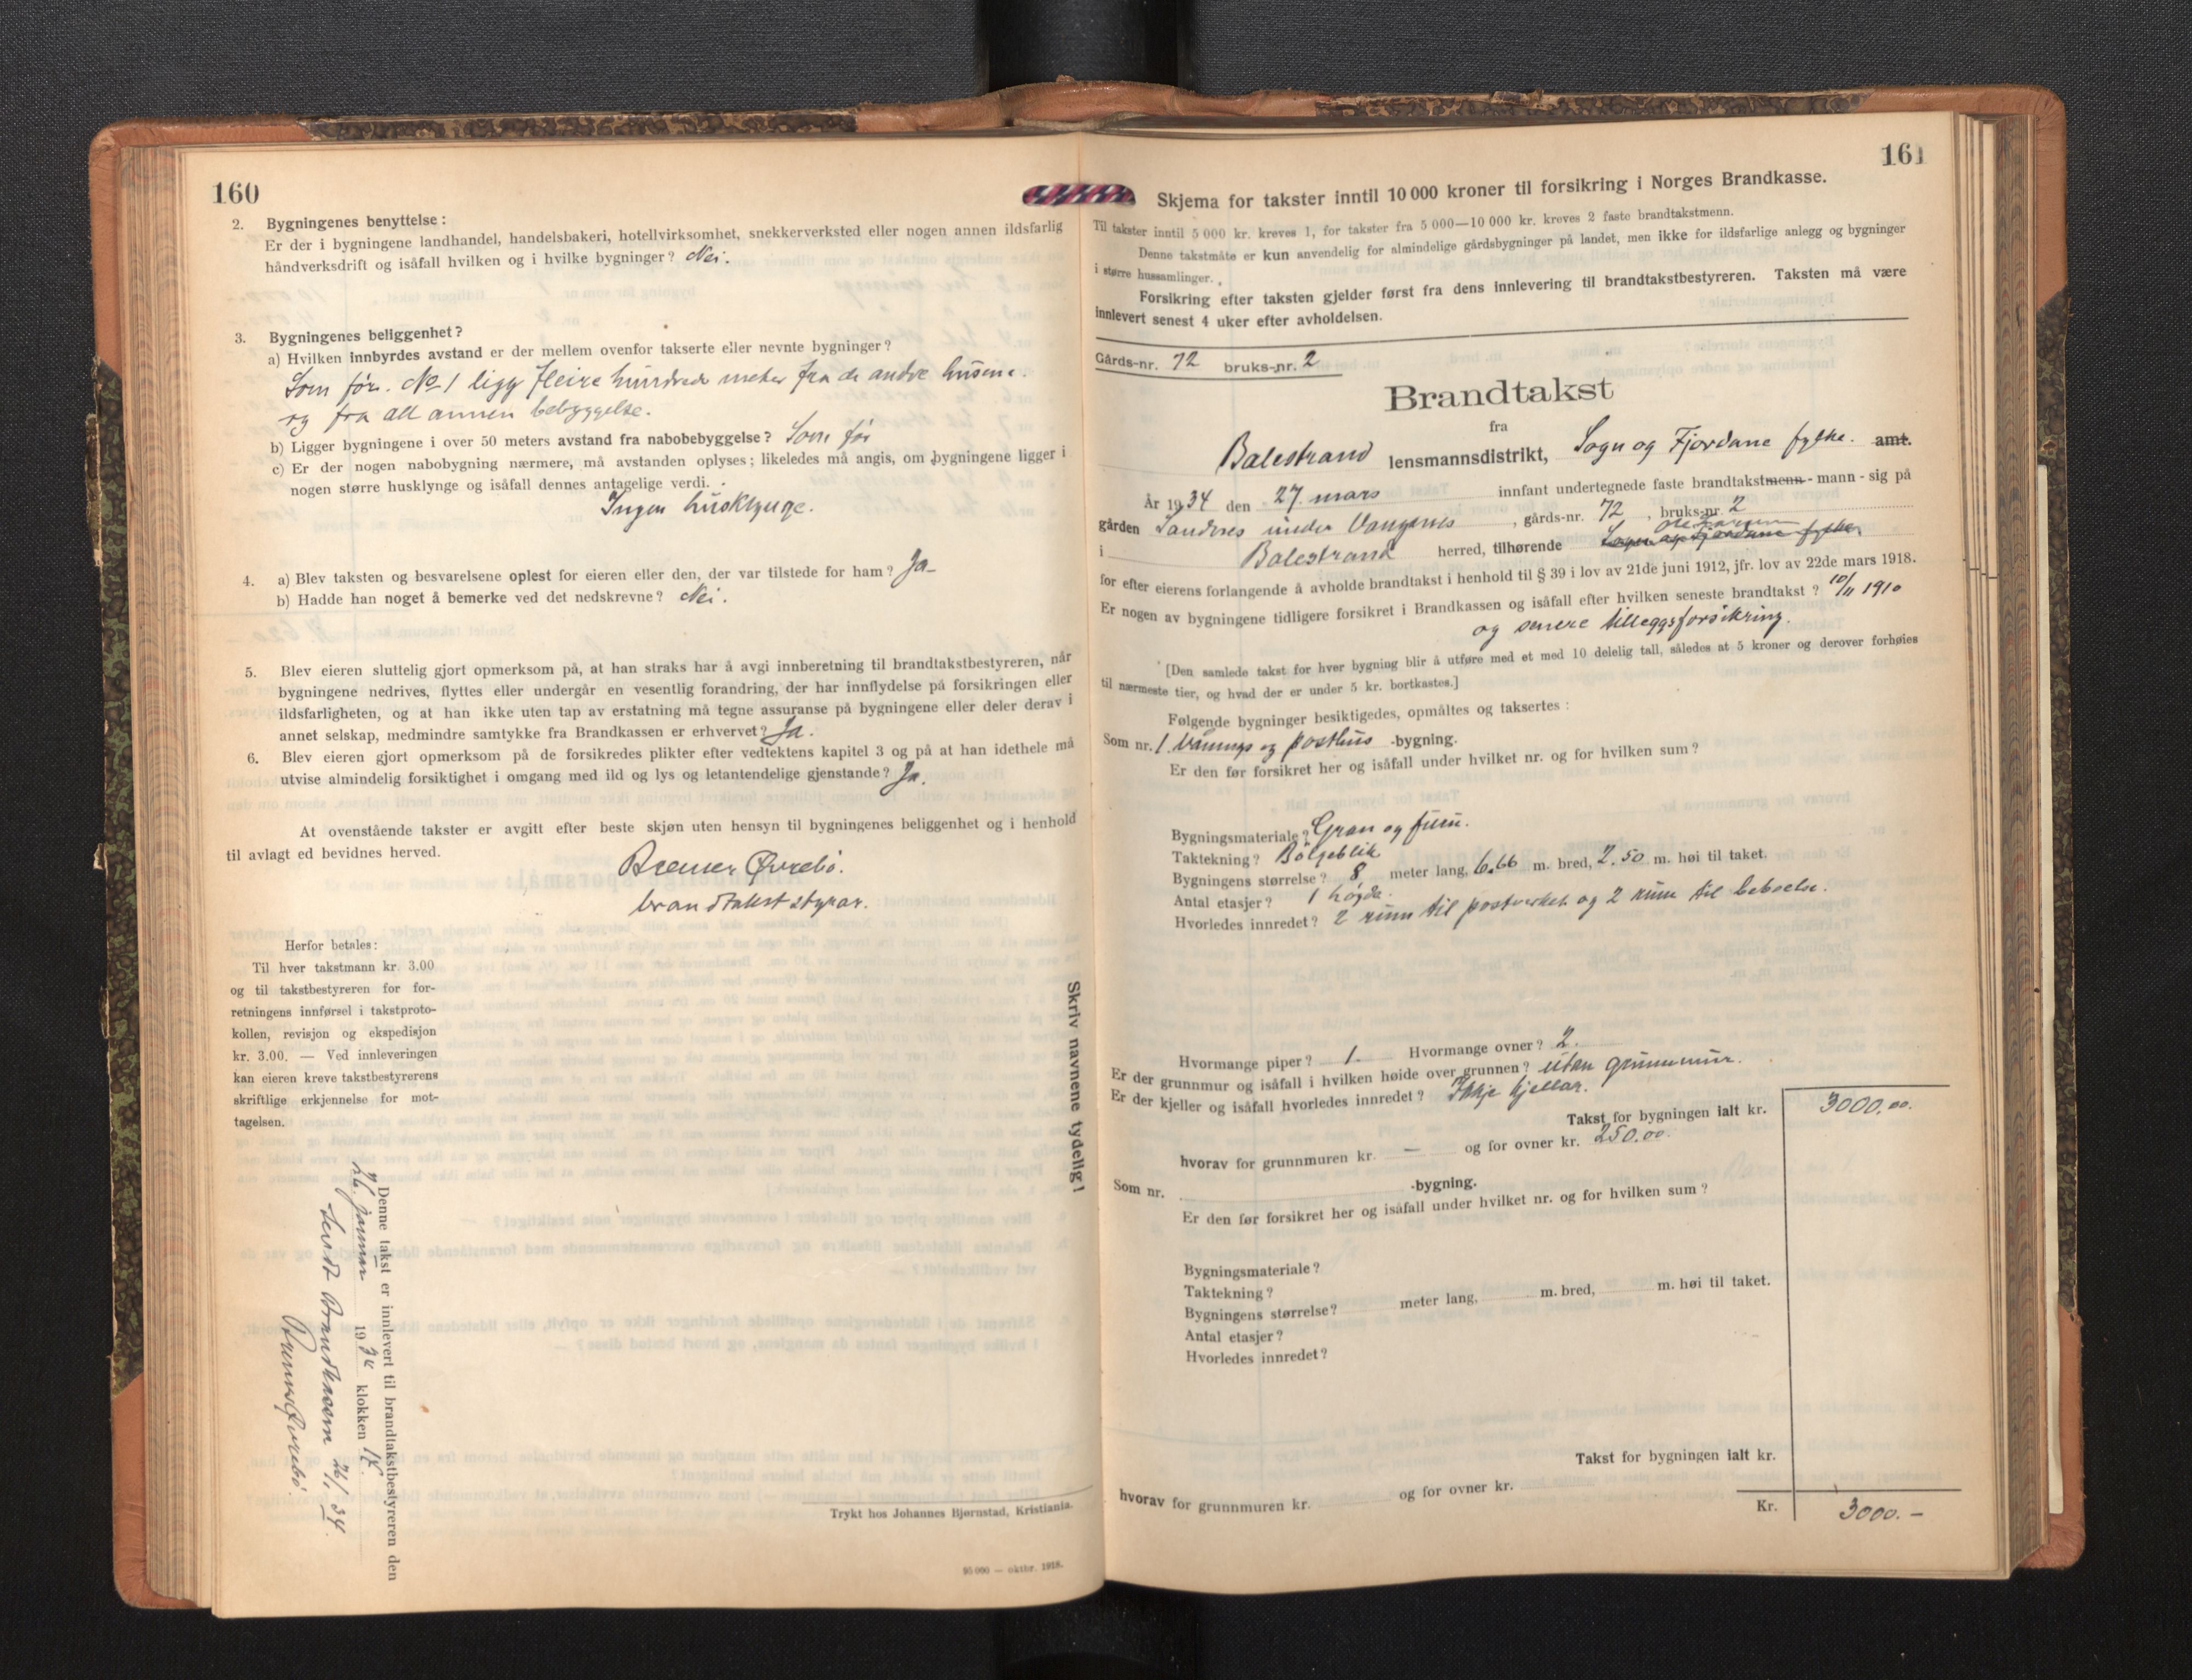 160
2. Bygningenes benyttelse :
Er der i bygningene landhandel, handelsbakeri, hotellvirksomhet, snekkerverksted eller nogen annen ildsfarlig
håndverksdrift og isåfall hvilken og i hvilke bygninger? Nei.
3. Bygningenes beliggenhet?
a) Hvilken innbyrdes avstand er der mellem ovenfor takserte eller nevnte bygninger?
Som før. No 1 ligg fleire hundrede meter fra de andre husene.
og fra all annen bebyggelse.
b) Ligger bygningene i over 50 meters avstand fra nabobebyggelse? Som før
c) Er der nogen nabobygning nærmere, må avstanden oplyses; likeledes må angis, om bygningene ligger i
nogen større husklynge og isåfall dennes antagelige verdi.
Ingen husklynge.
4. a) Blev taksten og besvarelsene oplest for eieren eller den, der var tilstede for ham? Ja
b) Hadde han noget å bemerke ved det nedskrevne? Nei.
5. Blev eieren sluttelig gjort opmerksom på, at han straks har å avgi innberetning til brandtakstbestyreren, når
bygningene nedrives, flyttes eller undergår en vesentlig forandring, der har innflydelse på forsikringen eller
ildsfarligheten, og at han ikke uten tap av erstatning må tegne assuranse på bygningene eller deler derav i
annet selskap, medmindre samtykke fra Brandkassen er erhvervet? Ja.
6. Blev eieren gjort opmerksom på de forsikredes plikter efter vedtektens kapitel 3 og på at han idethele må
utvise almindelig forsiktighet i omgang med ild og lys og letantendelige gjenstande? Ja.
At ovenstående takster er avgitt efter beste skjøn uten hensyn til bygningenes beliggenhet og i henhold
til avlagt ed bevidnes herved.
Øvrebø.
brandtakststyrar.
Herfor betales:
Til hver takstmann kr. 3.00
og til takstbestyreren for for-
retningens innførsel i takstproto-
kollen, revisjon og ekspedisjon
kr. 3.00. — Ved innleveringen
kan eieren kreve takstbestyrerens
skriftlige erkjennelse for mot-
tagelsen.
Skriv navnene tydelig!
Denne takst er innlevert til brandtakstbestyreren den
26. januar 1934 klokken 14.
Sendt Brandkassen 26/1 34.
Øvrebø.
Trykt hos Johannes Bjørnstad, Kristiania.
95 000 — oktbr. 1918.
161
Skjema for takster inntil 10 000 kroner til forsikring i Norges Brandkasse.
Til takster inntil 5 000 kr. kreves 1, for takster fra 5 000—10 000 kr. kreves 2 faste brandtakstmenn.
Denne takstmåte er kun anvendelig for almindelige gårdsbygninger på landet, men ikke for ildsfarlige anlegg og bygninger
i større hussamlinger.
Forsikring efter taksten gjelder først fra dens innlevering til brandtakstbestyreren. Taksten må være
innlevert senest 4 uker efter avholdelsen.
Gårds-nr. 72 bruks-nr. 2
Brandtakst
fra
Balestrand lensmannsdistrikt, Sogn og Fjordane fylke. amt.
År 1934 den 27. mars innfant undertegnede faste brandtakstmenn - mann - sig på
gården Sandnes under Vangsnes, gårds-nr. 72, bruks-nr. 2
i Balestrand herred, tilhørende Sogn og Fjordane fylke
for efter eierens forlangende å avholde brandtakst i henhold til § 39 i lov av 21de juni 1912, jfr. lov av 22de mars 1918.
Er nogen av bygningene tidligere forsikret i Brandkassen og isåfall efter hvilken seneste brandtakst? 10/11 1910
og senere tilleggsforsikring.
[Den samlede takst for hver bygning blir å utføre med et med 10 delelig tall, således at 5 kroner og derover forhøies
til nærmeste tier, og hvad der er under 5 kr. bortkastes.]
Følgende bygninger besiktigedes, opmåltes og taksertes :
Som nr. 1. Vånings og posthus -bygning.
Er den før forsikret her og isåfall under hvilket nr. og for hvilken sum?
Bygningsmateriale? Gran og furu.
Taktekning? Bølgeblik
Bygningens størrelse? 8 meter lang, 6.66 m. bred, 2.50 m. høi til taket.
Antal etasjer? 1 høgde
Hvorledes innredet? 2 rum til postverket og 2 rum til beboelse.
Hvormange piper? 1. Hvormange ovner? 2.
Er der grunnmur og isåfall i hvilken høide over grunnen? utan grunnmur.
Er der kjeller og isåfall hvorledes innredet? Ikkje kjellar.
Takst for bygningen ialt kr. 3000.00.
hvorav for grunnmuren kr. — og for ovner kr. 250.00.
Som nr. -bygning.
Er den før forsikret her og isåfall under hvilket nr. og for hvilken sum?
Bygningsmateriale?
Taktekning?
Bygningens størrelse? meter lang, m. bred, m. høi til taket.
Antal etasjer?
Hvorledes innredet?
Takst for bygningen ialt kr.
hvorav for grunnmuren kr. og for ovner kr.
Kr. 3000.—